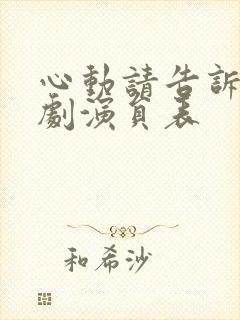 心動請告訴
劇演員表
和希沙